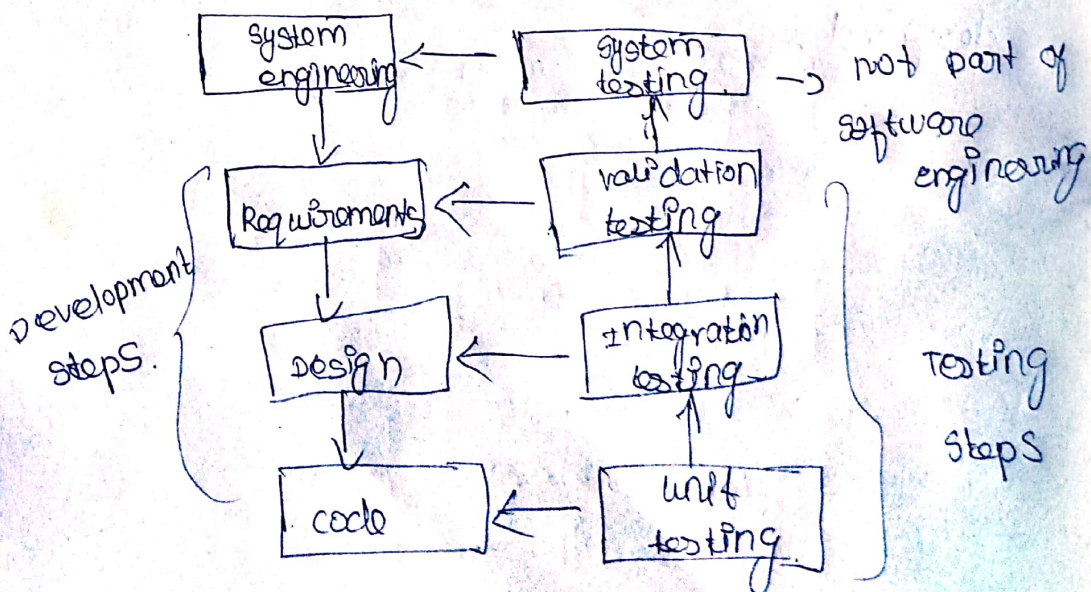 system
engineering
system
testing
→ not part of
software
engineering
Requirements
validation
testing
Development
steps.
Design
Integration
testing
Testing
steps
code
unit
testing